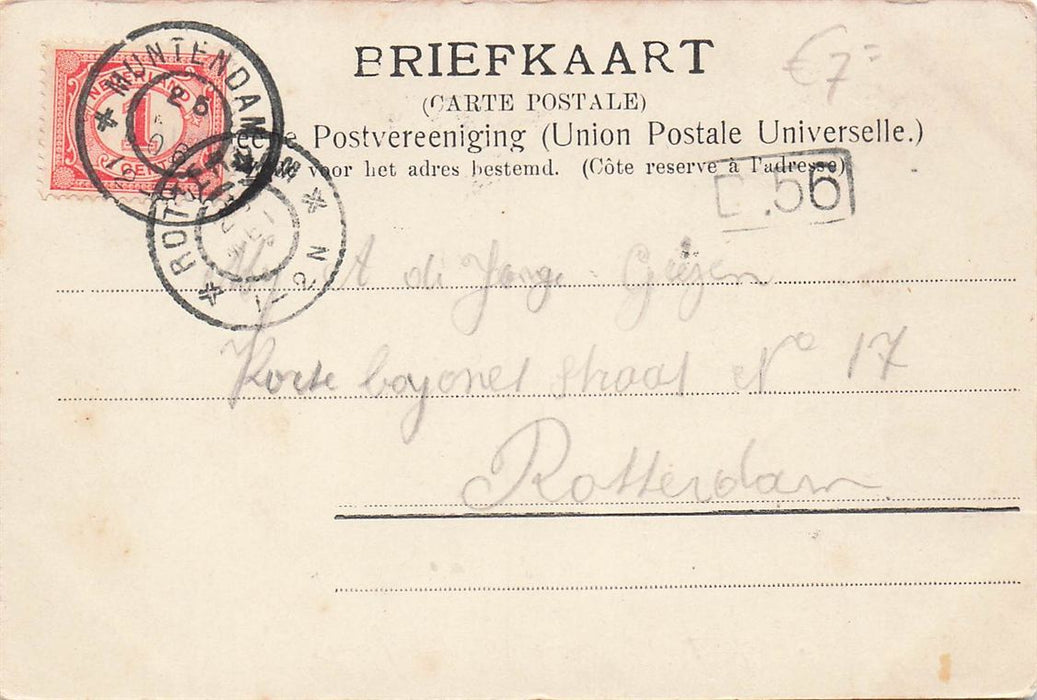 BRIEFKAART
€7=
(CARTE POSTALE)
Postvereeniging (Union Postale Universelle.)
voor het adres bestemd. (Côte reserve à l'adresse)
MUNTENDAM
25
NEDERLAND
1
CENT
ROTTERDAM
.56
A de Jonge
Korte bajonet straat No 17
Rotterdam